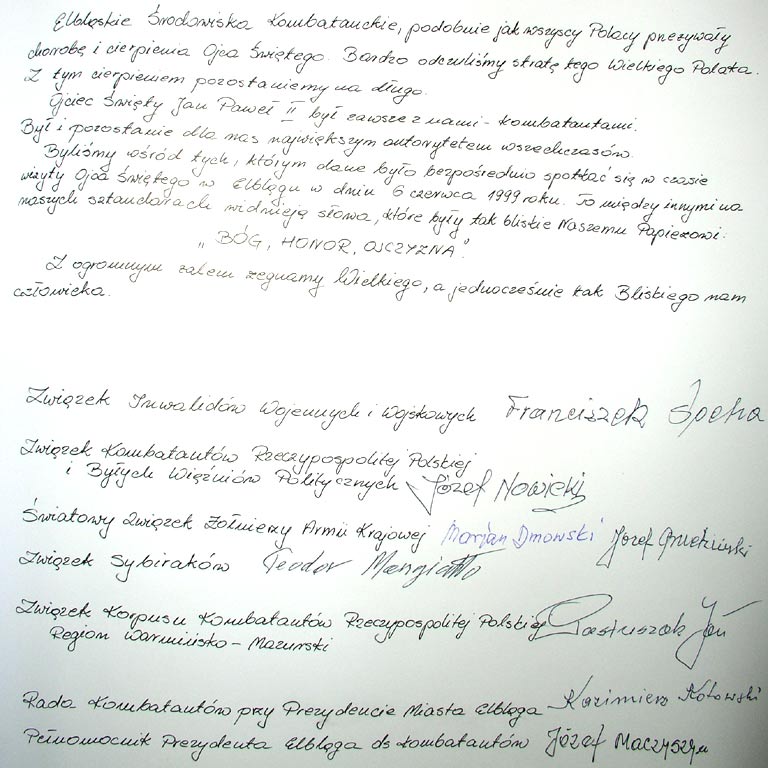 Elbląskie Środowiska Kombatanckie, podobnie jak wszyscy Polacy przeżywały
chorobę i cierpienia Ojca Świętego. Bardzo odczuliśmy stratę tego Wielkiego Polaka.
Z tym cierpieniem pozostaniemy na długo.
Ojciec Święty Jan Paweł II był zawsze z nami - kombatantami.
Był i pozostanie dla nas największym autorytetem wszechczasów.
Byliśmy wśród tych, którym dane było bezpośrednio spotkać się w czasie
wizyty Ojca Świętego w Elblągu w dniu 6 czerwca 1999 roku. To między innymi na
naszych sztandarach widnieją słowa, które były tak bliskie Naszemu Papieżowi:
„BÓG, HONOR, OJCZYZNA”.
Z ogromnym żalem żegnamy Wielkiego, a jednocześnie tak Bliskiego nam
człowieka.
Związek Inwalidów Wojennych i Wojskowych Franciszek
Związek Kombatantów Rzeczypospolitej Polskiej
i Byłych Więźniów Politycznych Józef Nowicki
Światowy Związek Żołnierzy Armii Krajowej Marjan Dmowski Józef
Związek Sybiraków Teodor
Związek Korpusu Kombatantów Rzeczypospolitej Polskiej Pastuszak Jan
Region Warmińsko-Mazurski
Rada Kombatantów przy Prezydencie Miasta Elbląga Kazimierz Kotowski
Pełnomocnik Prezydenta Elbląga ds kombatantów Józef Maczyszyn